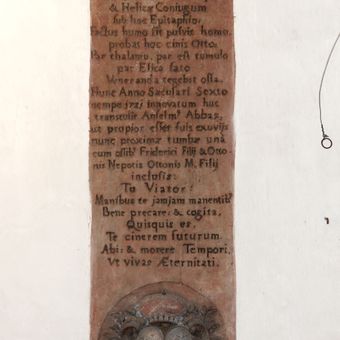 & Helicæ Coniugum
sub hoc Epitaphio.
Factus humo sit pulvis homo,
probat hoc cinis Otto.
Par thalamo, par est tumulo
par Elica fato
Veneranda tegebit ossa.
Hunc Anno Sæculari Sexto
nempe innovatum huc
transtulit Anselm9 Abbas,
ut propior esset suis exuvijs
nunc proximæ tumbæ unà
cum ossib9 Friderici Filij & Otto-
nis Nepotis Ottonis M. Filij
inclusis:
Tu Viator:
Manibus te jamjam manentib9
Bene precare: & cogita,
Quisquis es,
Te cinerem futurum.
Abi: & morere Tempori,
Ut vivas Æternitati.